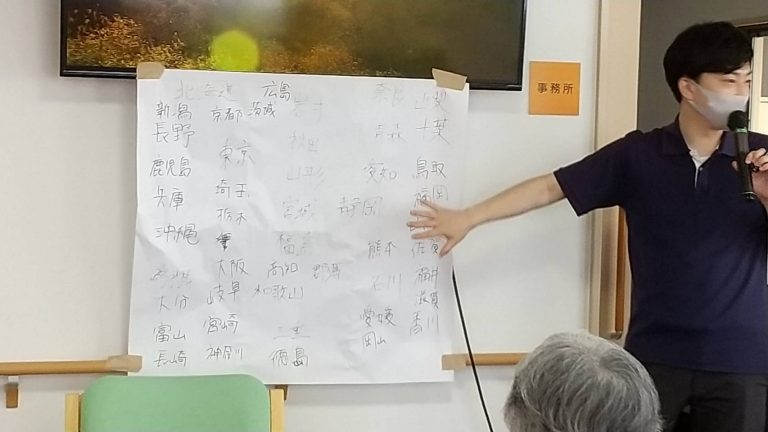 北海道
新潟
長野
鹿児島
兵庫
沖縄
大分
富山
長崎
京都
東京
埼玉
栃木
大阪
岐阜
宮崎
神奈川
広島
茨城
岩手
秋田
山形
宮城
福島
高知
和歌山
三重
徳島
静岡
奈良
青森
愛知
熊本
石川
愛媛
岡山
山梨
千葉
鳥取
福岡
佐賀
福井
滋賀
香川
事務所